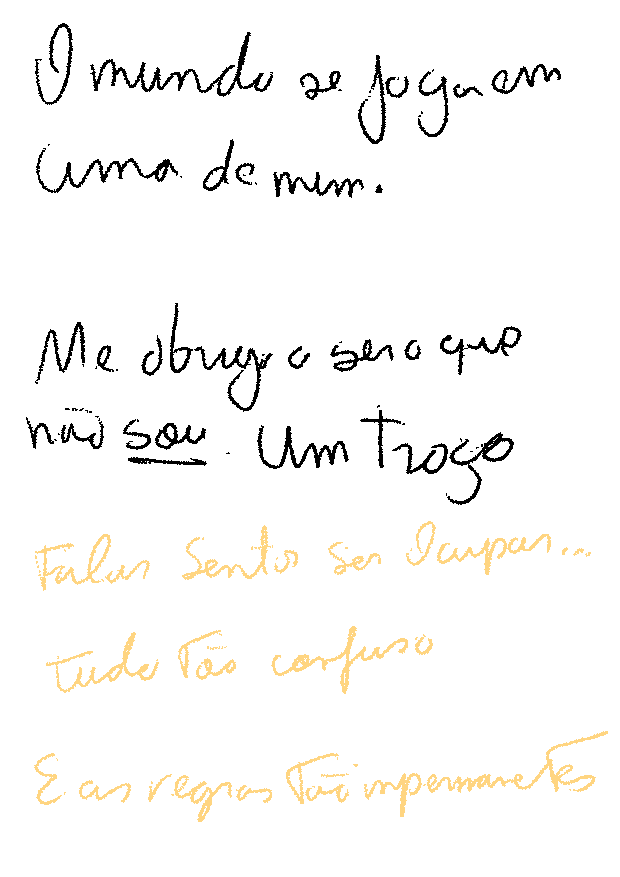 O mundo se joga em
cima de mim.
Me obriga a ser o que
não sou. Um troço
Falar Sentir Ser Ocupar...
tudo tão confuso
E as regras tão impermanetes